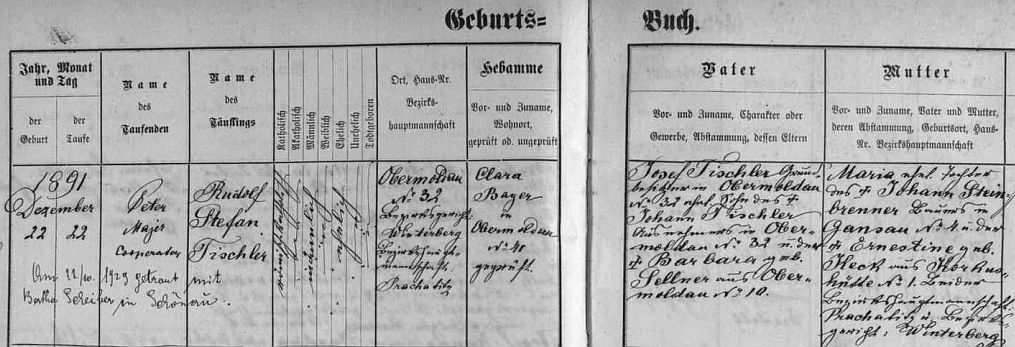 Geburts=
Buch.
Jahr, Monat
und Tag
der
Geburt
der
Taufe
Name
des
Taufenden
Name
des
Täuflings
Katholisch
Akatholisch
Männlich
Weiblich
Ehelich
Unehelich
Todtgeboren
Ort, Haus-Nr.
Bezirks-
hauptmannschaft
Hebamme
Vor- und Zuname,
Wohnort,
geprüft od. ungeprüft
Vater
Vor- und Zuname, Charakter oder
Gewerbe, Abstammung, dessen Eltern
Mutter
Vor- und Zuname, Vater und Mutter,
deren Abstammung, Geburtsort, Haus-
Nr. Bezirkshauptmannschaft
1891
Dezember
22 22
Peter
Cooperator
Rudolf
Stefan
Tischler
männlich
ehelich
Obermoldau
N° 32
Bezirksgericht
Winterberg
Bezirkshaupt-
mannschaft
Prachatitz
Clara
in
Obermoldau
geprüft.
Am 22/10. 1929 getraut mit
in Schönau.
Josef Tischler Grund-
besitzer in Obermoldau
N° 32 ehel. Sohn des †
Johann Tischler
Ausnehmers in Ober-
moldau N° 32 u. der
† Barbara geb.
Sellner aus Ober-
moldau N° 10.
Maria ehel. Tochter
des † Johann Stein-
brenner Bauers in
Gansau N° 4 u. der
† Ernestine geb.
Heck aus Korkus-
hütte N° 1. Beider
Bezirkshauptmannschaft
Prachatitz u. Bezirks-
gericht: Winterberg